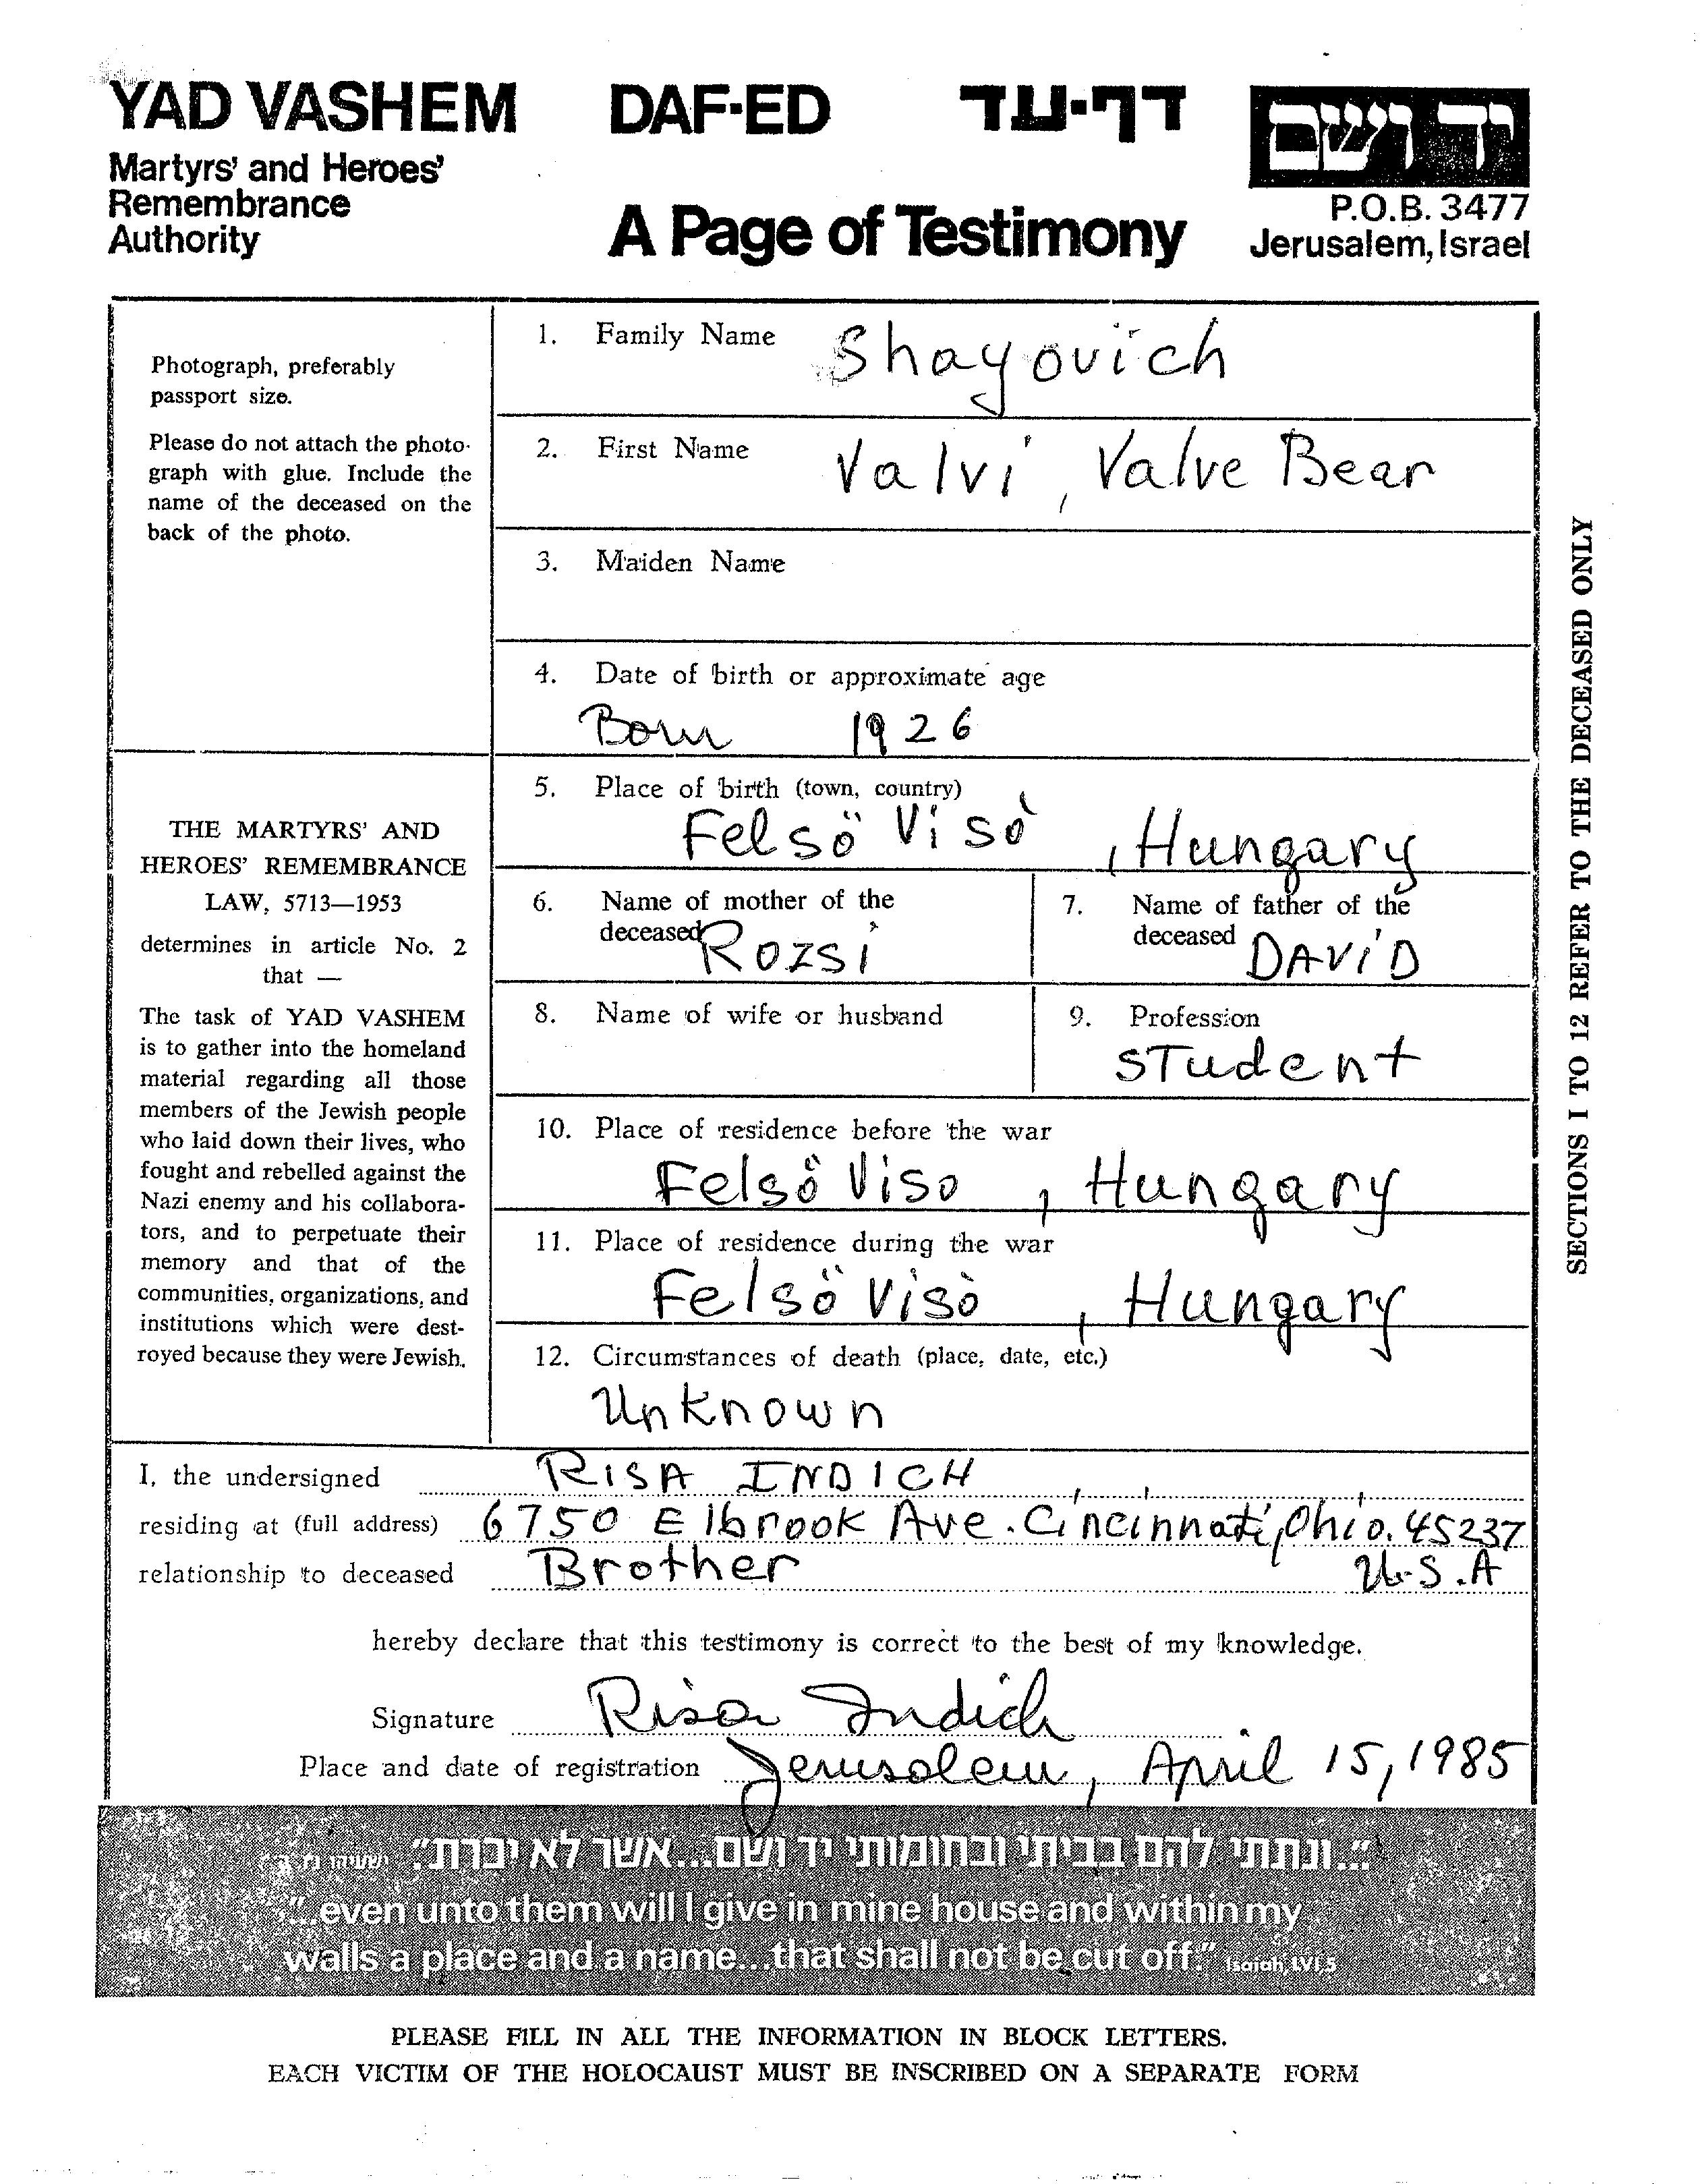 YAD VASHEM DAF-ED דף-עד יד ושם
Martyrs' and Heroes'
Remembrance
Authority
A Page of Testimony
P.O.B. 3477
Jerusalem, Israel
Photograph, preferably
passport size.
Please do not attach the photo-
graph with glue. Include the
name of the deceased on the
back of the photo.
THE MARTYRS' AND
HEROES' REMEMBRANCE
LAW, 5713—1953
determines in article No. 2
that —
The task of YAD VASHEM
is to gather into the homeland
material regarding all those
members of the Jewish people
who laid down their lives, who
fought and rebelled against the
Nazi enemy and his collabora-
tors, and to perpetuate their
memory and that of the
communities, organizations, and
institutions which were dest-
royed because they were Jewish.
1. Family Name Shayovich
2. First Name Valvi, Valve Bear
3. Maiden Name
4. Date of birth or approximate age
Born 1926
5. Place of birth (town, country)
Felsö Visó, Hungary
6. Name of mother of the
deceased ROZSI
7. Name of father of the
deceased DAVID
8. Name of wife or husband
9. Profession
STudent
10. Place of residence before the war
Felsö Viso, Hungary
11. Place of residence during the war
Felsö Visò, Hungary
12. Circumstances of death (place, date, etc.)
Unknown
SECTIONS 1 TO 12 REFER TO THE DECEASED ONLY
I, the undersigned RISA INDICH
residing at (full address) 6750 Elbrook Ave. Cincinnati, Ohio. 45237
U.S.A
relationship to deceased Brother
hereby declare that this testimony is correct to the best of my knowledge.
Signature Risa Indich
Place and date of registration Jerusalem, April 15, 1985
"...ונתתי להם בביתי ובחומותי יד ושם...אשר לא יכרת". ישעיהו נו ה
"...even unto them will I give in mine house and within my
walls a place and a name...that shall not be cut off." Isaiah, LVI,5
PLEASE FILL IN ALL THE INFORMATION IN BLOCK LETTERS.
EACH VICTIM OF THE HOLOCAUST MUST BE INSCRIBED ON A SEPARATE FORM